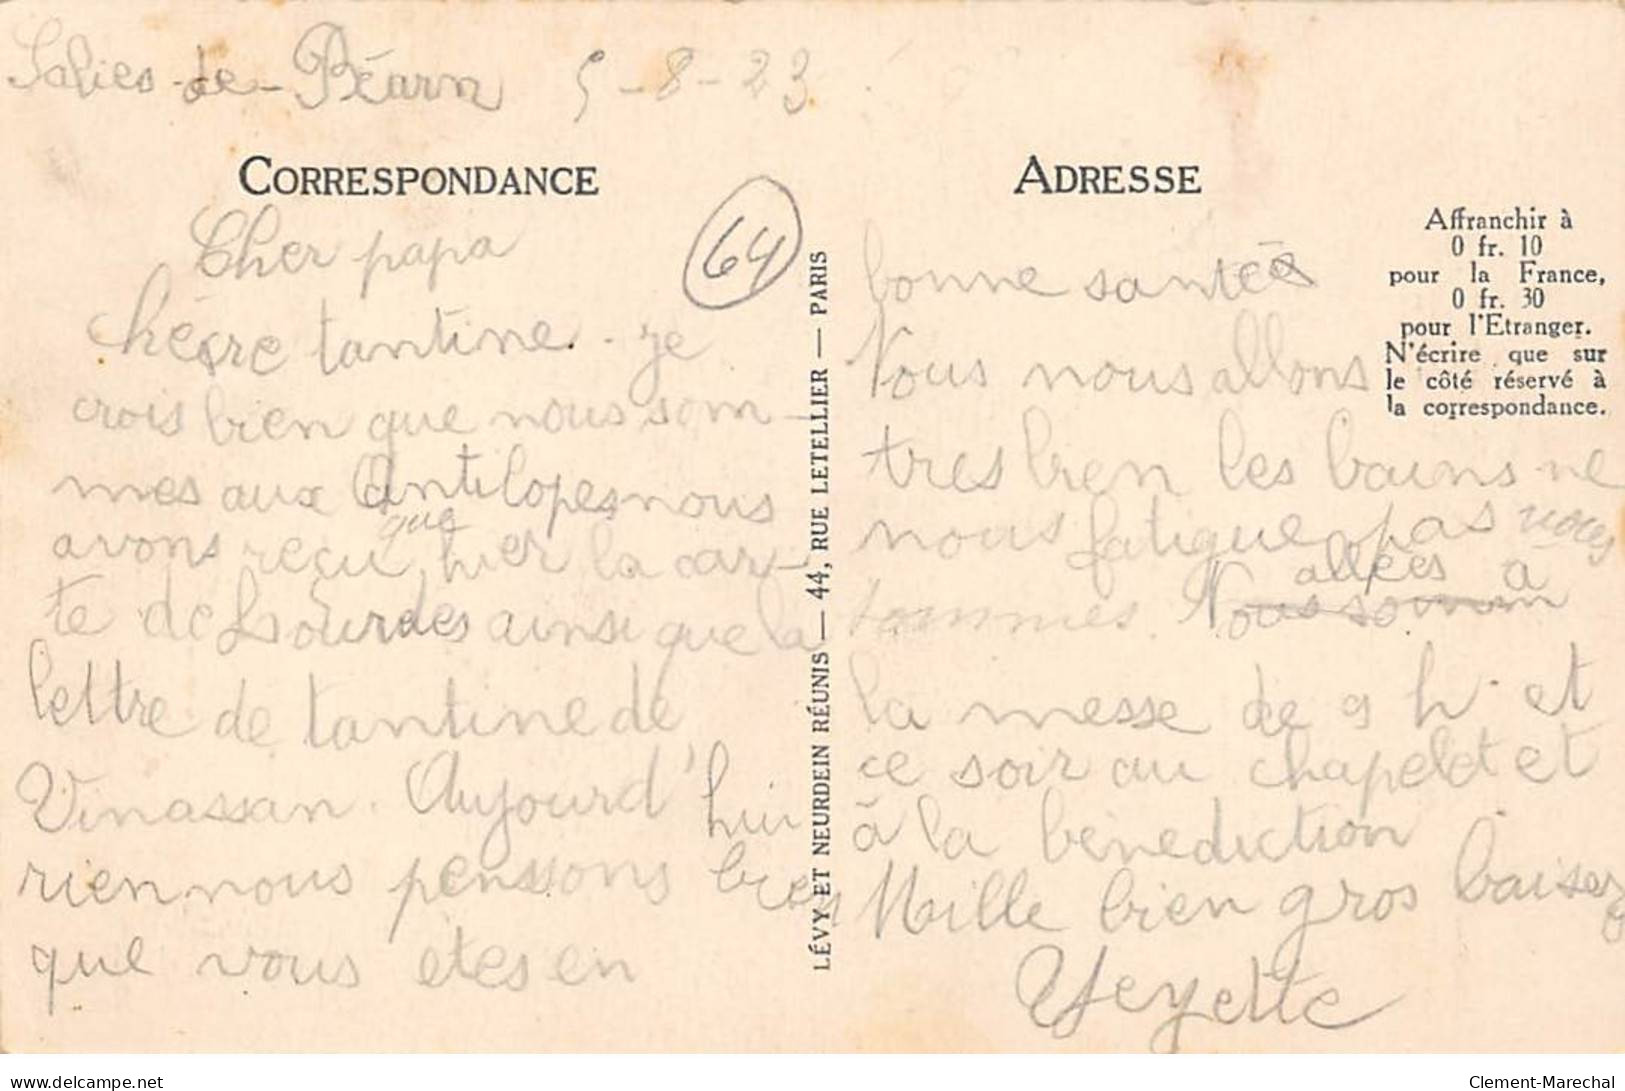 Salies-de-Béarn 5-8-23
CORRESPONDANCE
64
Cher papa
chère tantine. je
crois bien que nous som-
mes aux Antilopes nous
avons reçu que hier la car-
te de Lourdes ainsi que la
lettre de tantine de
Vinassan. Aujourd'hui
rien nous pensons bien
que vous etes en
LÉVY ET NEURDEIN RÉUNIS — 44, RUE LETELLIER — PARIS
ADRESSE
Affranchir à
0 fr. 10
pour la France,
0 fr. 30
pour l'Etranger.
N'écrire que sur
le côté réservé à
la correspondance.
bonne santée
Nous nous allons
tres bien les bains ne
nous fatigue pas nous
sommes. Nous somm allées a
la messe de 9 h. et
ce soir au chapelet et
à la bénédiction
Mille bien gros baisez
Yeyette
delcampe.net
Clement-Marechal